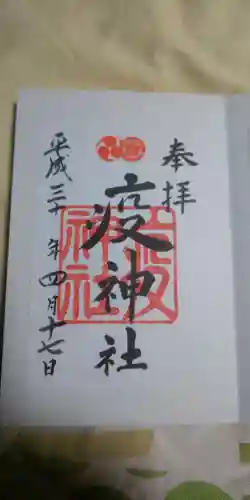 奉拝
疫神社
平成三十年四月十七日
疫神社